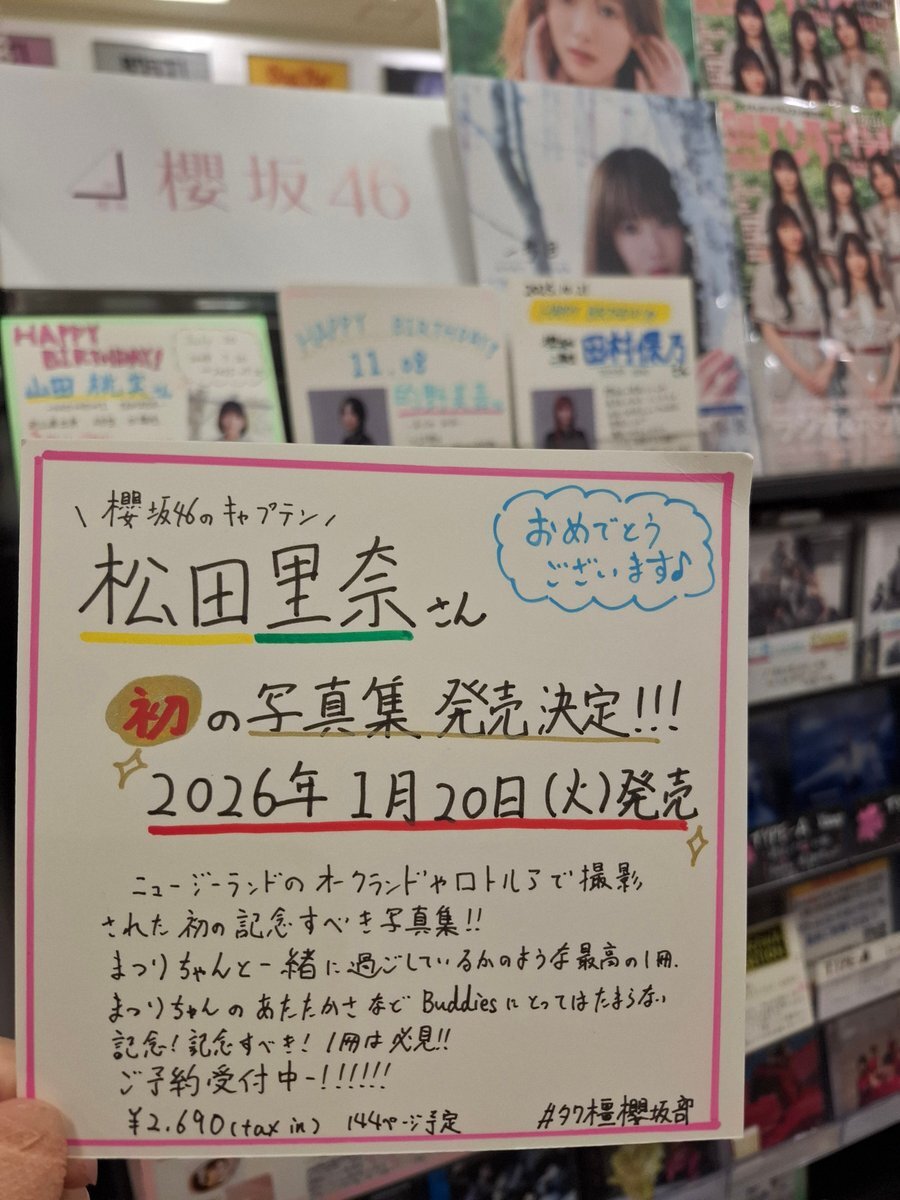 櫻坂46
HAPPY
BIRTHDAY!
HAPPY BIRTHDAY!
11.08
HAPPY BIRTHDAY
田村保乃
\ 櫻坂46のキャプテン /
松田里奈さん
おめでとう
ございます♪
初の写真集 発売決定!!!
2026年 1月20日(火)発売
ニュージーランドのオークランドやロトルアで撮影
された初の記念すべき写真集!!
まつりちゃんと一緒に過ごしているかのような最高の1冊.
まつりちゃんのあたたかさなど Buddiesにとってはたまらない
記念!記念すべき!1冊は必見!!
ご予約受付中ー!!!!!!
¥2.690(tax in) 144ページ予定
#タワ橿櫻坂部
TYPE-A